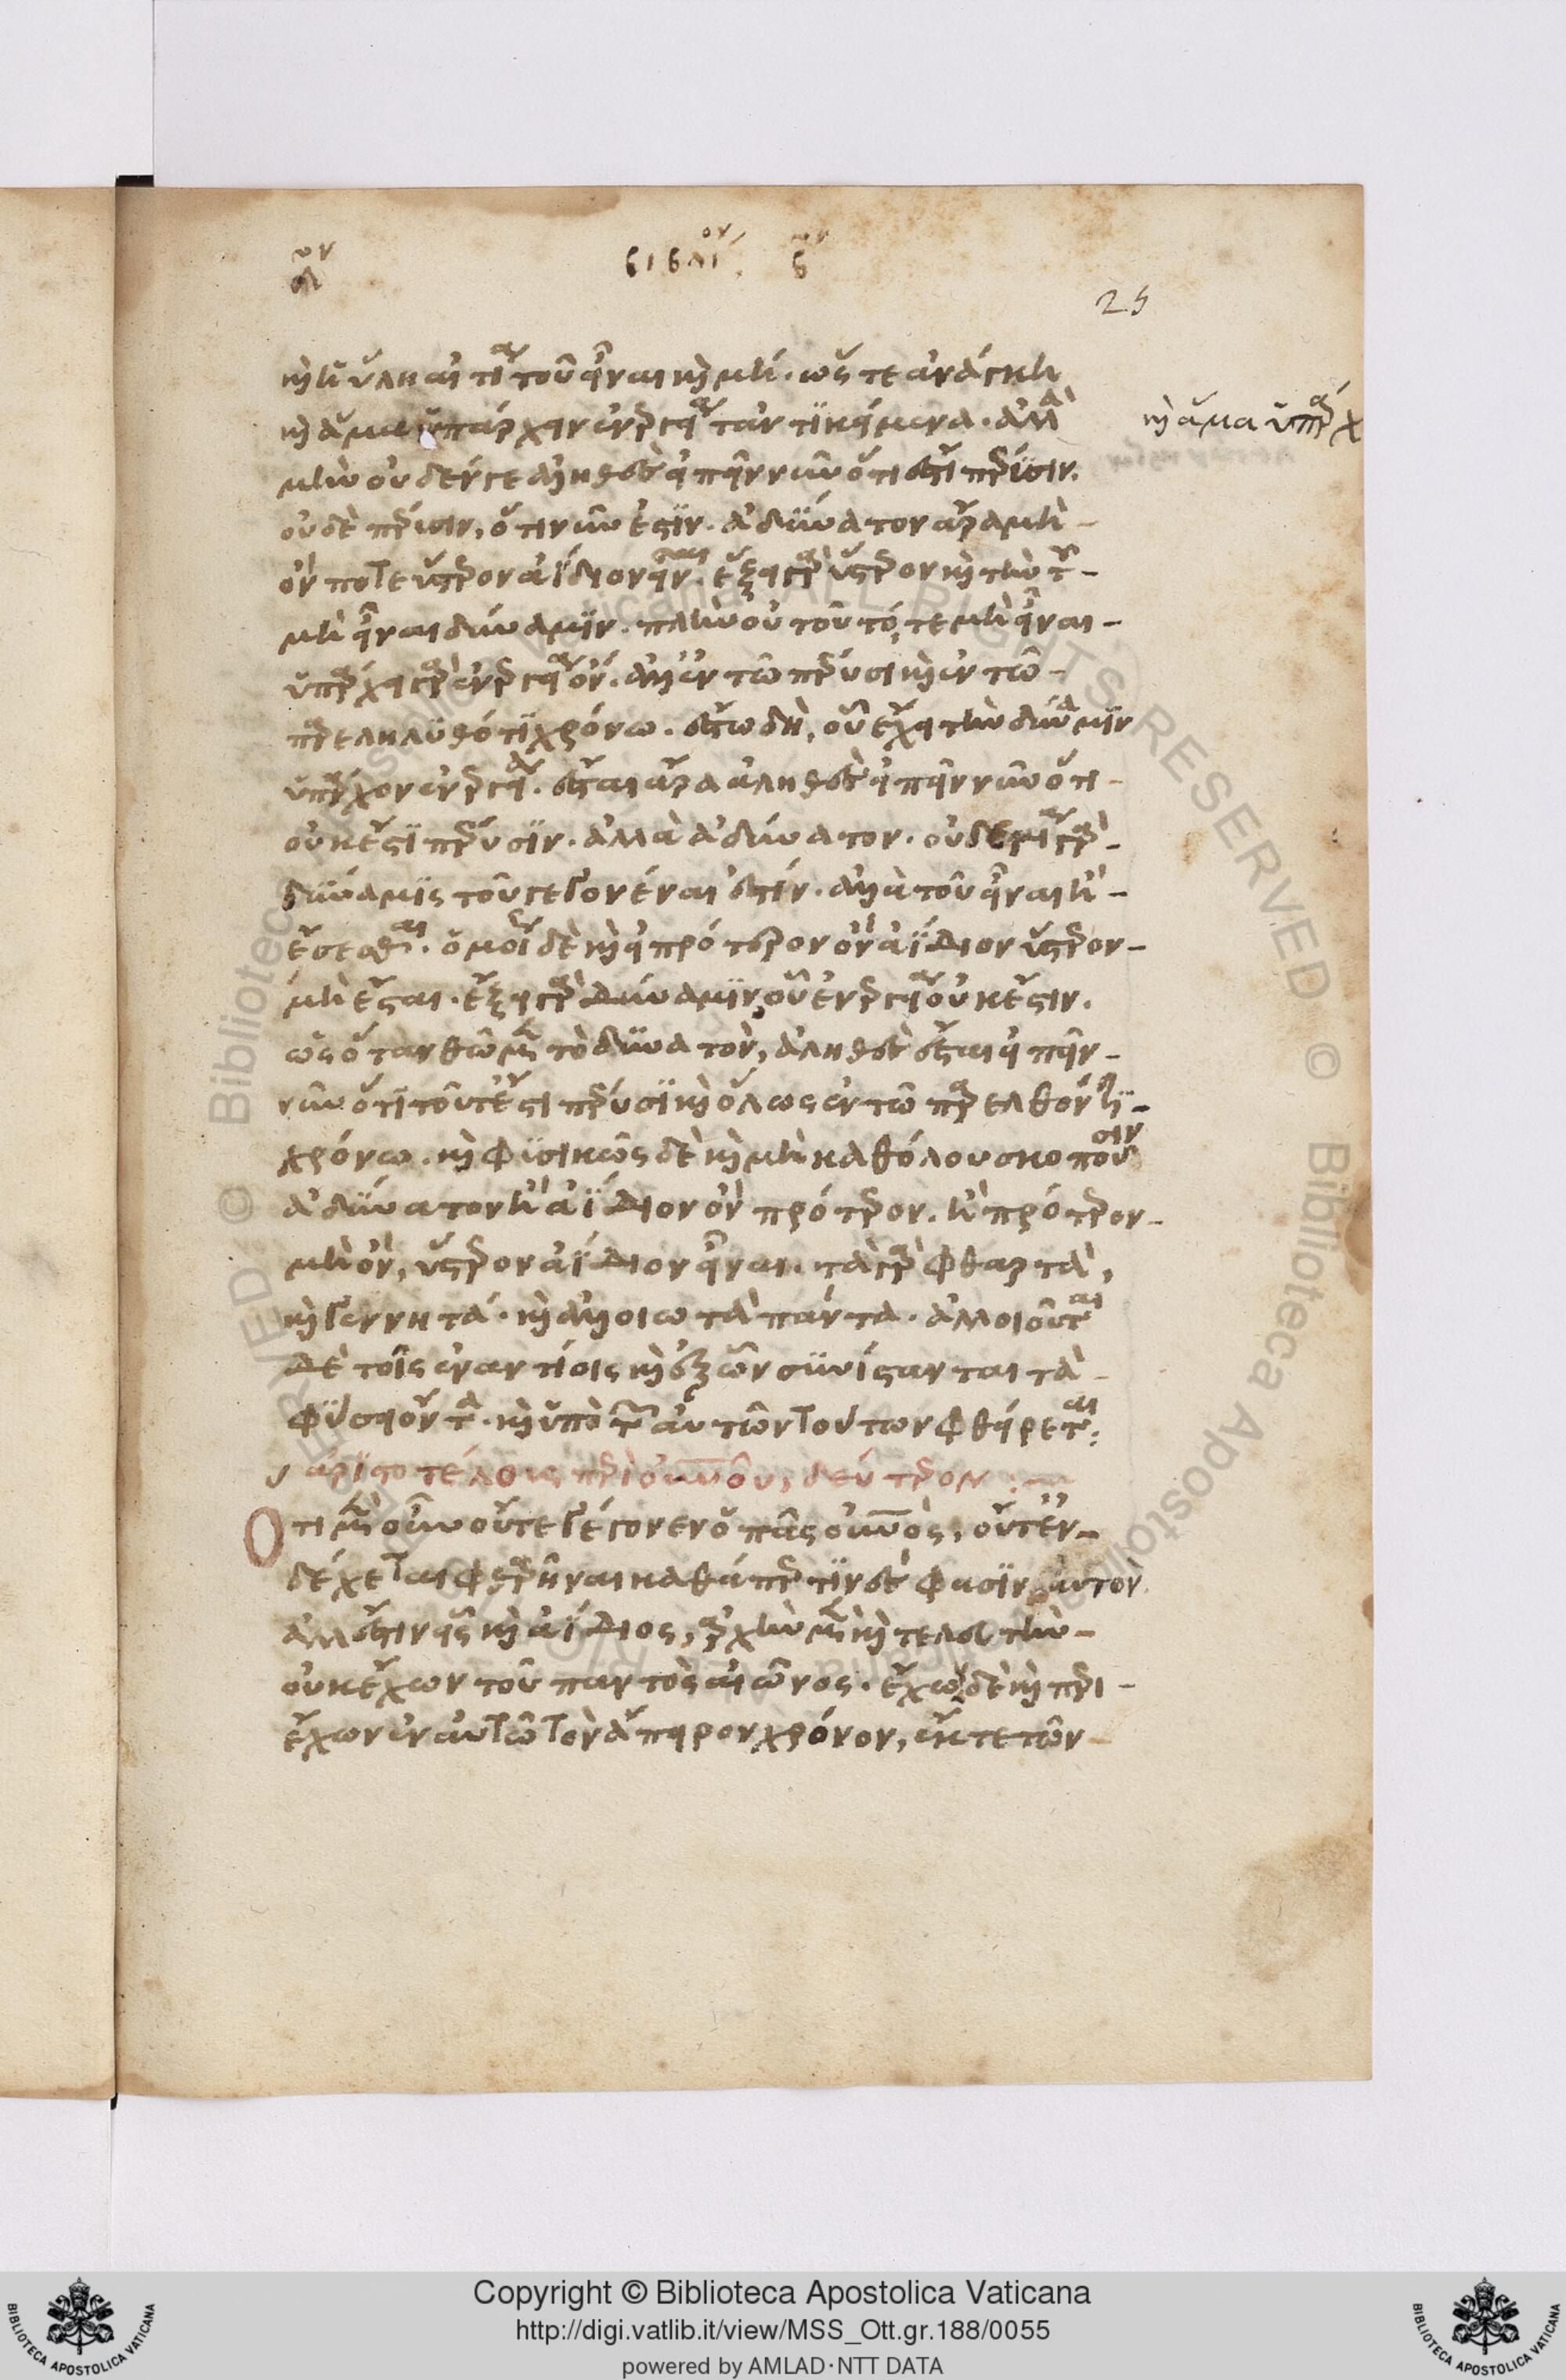 α^ον βιβλι^ον, β^ον
25
καὶ ἡ ὕλη αἰτία τοῦ εἶναι καὶ μή. ὥστε ἀνάγκη
καὶ ἅμα ὑπάρχειν ἐνεργείᾳ τἀντικείμενα. ἀλλὰ
μὴν οὐδέν γε ἀληθὲς εἰπεῖν νῦν ὅτι ἐστὶ πέρυσιν.
οὐδὲ πέρυσιν, ὅτι νῦν ἐστίν. ἀδύνατον ἄρα μὴ
ὄν ποτε ὕστερον ἀΐδιον εἶναι. ἕξει γὰρ ὕστερον καὶ τὴν τοῦ
μὴ εἶναι δύναμιν. πλὴν οὐ τοῦ τότε μὴ εἶναι
ὑπάρχει γὰρ ἐνεργείᾳ ὄν. ἀλλ' ἐν τῷ πέρυσι καὶ ἐν τῷ
παρεληλυθότι χρόνῳ. ἔστω δὴ, οὗ ἔχει τὴν δύναμιν
ὑπάρχον ἐνεργείᾳ. ἔσται ἄρα ἀληθὲς εἰπεῖν νῦν ὅτι
οὐκ ἔστι πέρυσιν. ἀλλὰ ἀδύνατον. οὐδεμία γὰρ
δύναμις τοῦ γεγονέναι ἐστίν. ἀλλὰ τοῦ εἶναι ἢ
ἔσεσθαι. ὁμοίως δὲ καὶ εἰ πρότερον ὂν ἀΐδιον ὕστερον
μὴ ἔσται. ἕξει γὰρ δύναμιν, οὗ ἐνεργείᾳ οὐκ ἔστιν.
ὡς ὅταν θῶμεν τὸ δυνατόν, ἀληθὲς ἔσται εἰπεῖν
νῦν ὅτι τοῦτ' ἔστι πέρυσι καὶ ὅλως ἐν τῷ παρελθόντι
χρόνῳ. καὶ φυσικῶς δὲ καὶ μὴ καθόλου σκοποῦσιν
ἀδύνατον ἢ ἀΐδιον ὂν πρότερον. ἢ πρότερον
μὴ ὄν, ὕστερον ἀΐδιον εἶναι. τὰ γὰρ φθαρτὰ,
καὶ γεννητά. καὶ ἀλλοιωτὰ πάντα. ἀλλοιοῦται
δὲ τοῖς ἐναντίοις καὶ ἐξ ὧν συνίσταται τὰ
φύσει ὄντα. καὶ ὑπὸ τῶν αὐτῶν τούτων φθείρεται:
ἀριστοτέλους περὶ οὐνοῦ, δεύτερον:
Ὅτι μὲν οὖν οὔτε γέγονεν ὁ πᾶς οὐνὸς, οὔτ' ἐν
δέχεται φθαρῆναι καθάπερ τινές φασιν αὐτὸν
ἀλλ' ἔστιν εἷς καὶ ἀΐδιος, ἀρχὴν μὲν καὶ τελευτὴν
οὐκ ἔχων τοῦ παντὸς αἰῶνος. ἔχων δὲ καὶ περι
έχων ἐν αὐτῷ τὸν ἄπειρον χρόνον, ἔκ τε τῶν
καὶ ἅμα ὑπάρχ
Copyright © Biblioteca Apostolica Vaticana
http://digi.vatlib.it/view/MSS_Ott.gr.188/0055
powered by AMLAD·NTT DATA